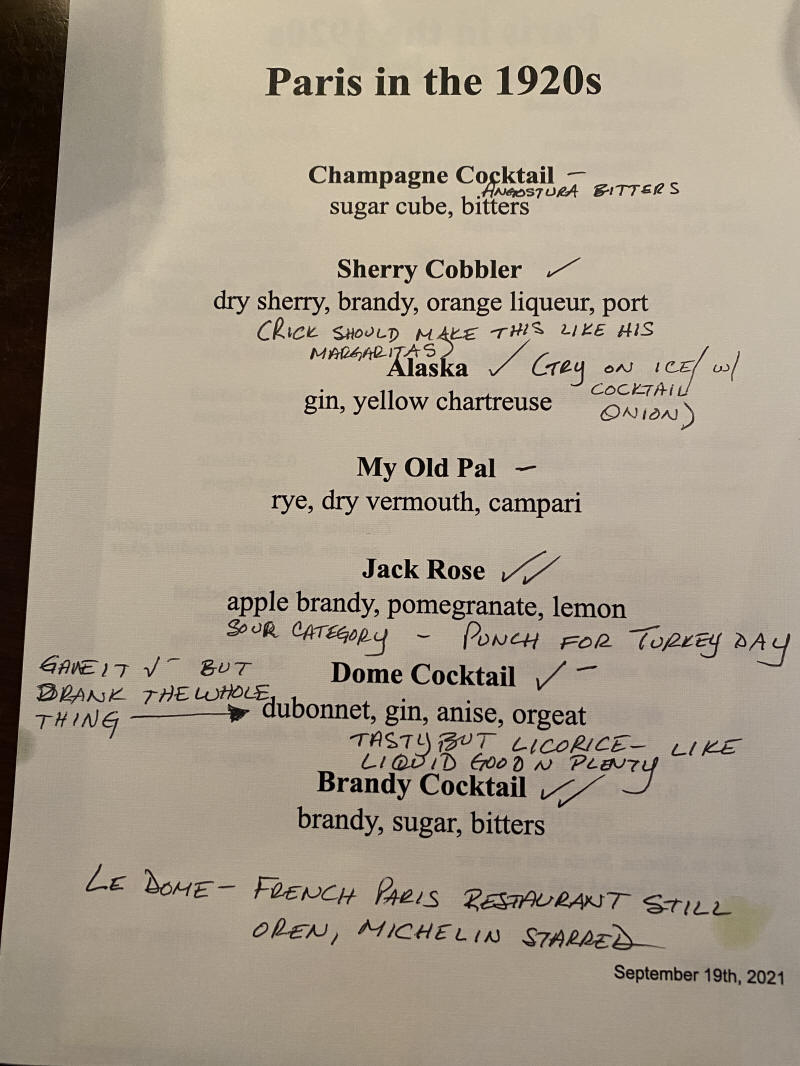 Paris in the 1920s
Champagne Cocktail –
ANGOSTURA BITTERS
sugar cube, bitters
Sherry Cobbler ✓
dry sherry, brandy, orange liqueur, port
(RICK SHOULD MAKE THIS LIKE HIS
MARGARITAS)
Alaska ✓ (TRY ON ICE/ W/
COCKTAIL
gin, yellow chartreuse ONION)
My Old Pal –
rye, dry vermouth, campari
Jack Rose ✓✓
apple brandy, pomegranate, lemon
SOUR CATEGORY – PUNCH FOR TURKEY DAY
GAVE IT ✓– BUT
DRANK THE WHOLE
THING
Dome Cocktail ✓–
dubonnet, gin, anise, orgeat
TASTY BUT LICORICE – LIKE
LIQUID GOOD N PLENTY
Brandy Cocktail ✓✓
brandy, sugar, bitters
LE DOME – FRENCH PARIS RESTAURANT STILL
OPEN, MICHELIN STARRED
September 19th, 2021